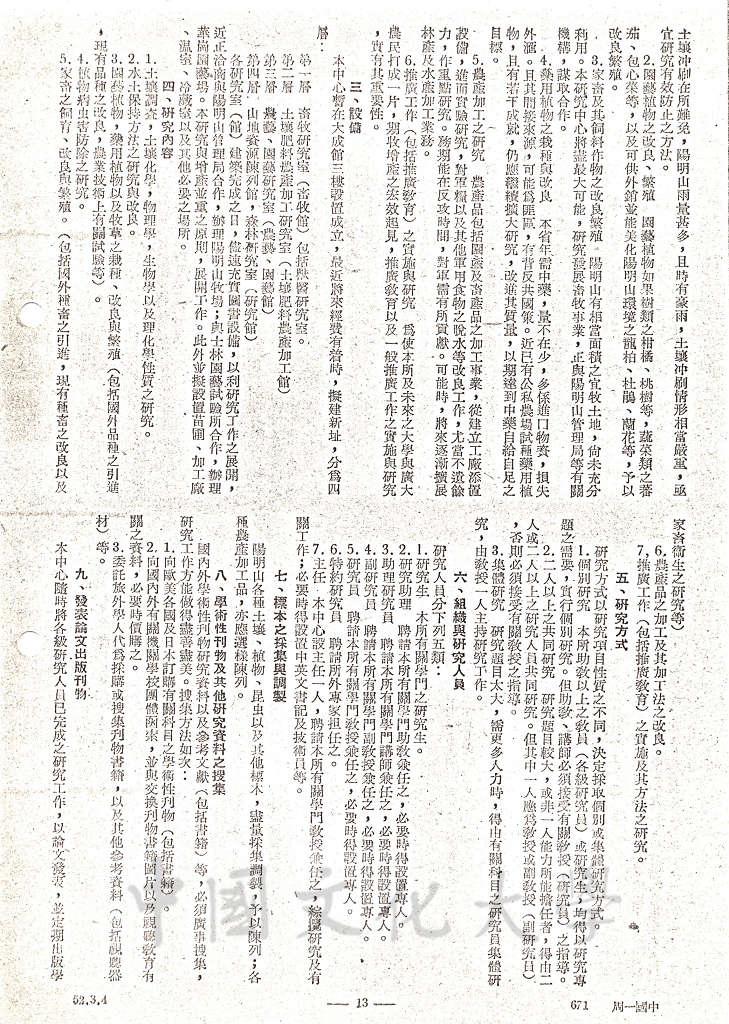 土壤冲刷在所難免，陽明山雨量甚多，且時有豪雨，土壤冲刷情形相當嚴重，亟
宜研究有效防止之方法。
2.園藝植物之改良、繁殖　園藝植物如果樹類之柑橘、桃樹等，蔬菜類之蕃
茄、包心菜等，以及可供外銷並能美化陽明山環境之龍柏、杜鵑、蘭花等，予以
改良繁殖。
3.家畜及其飼料作物之改良繁殖　陽明山有相當面積之宜牧土地，尙未充分
利用。本研究中心將盡最大可能，研究發展畜牧事業，正與陽明山管理局等有關
機構，謀取合作。
4.藥用植物之栽種與改良　本省年需中藥，量不在少，多係進口物資，損失
外滙。且其間接來源，可能爲匪區，有背反共國策。近已有公私農場試種藥用植
物，且有若干成就，仍應繼續擴大研究，改進其質量，以期達到中藥自給自足之
目標。
5.農產加工之研究　農產品包括園產及畜產品之加工事業，從建立工廠添置
設備，進而實驗研究，對軍糧以及其他軍用食物之脫水等改良工作，尤當不遺餘
力，作重點研究。務期能在反攻時間，對軍需有所貢獻。可能時，將來逐漸擴展
林產及水產加工業務。
6.推廣工作（包括推廣教育）之實施與研究　爲使本所及未來之大學與廣大
農民打成一片，期收增產之宏效起見，推廣教育以及一般推廣工作之實施與研究
，實有其重要性。
三、設備
本中心暫在大成館三樓設置成立，最近將來經費有着時，擬建新址，分爲四
層：
第一層　畜牧研究室（畜牧館）包括獸醫研究室。
第二層　土壤肥料農產加工研究室（土壤肥料農產加工館）
第三層　農藝、園藝研究室（農藝、園藝館）
第四層　山地資源陳列館，森林研究室（研究館）
各研究室（館）建築完成之日，儘速充實圖書設備，以利研究工作之展開，
近正洽商與陽明山管理局合作，辦理陽明山牧場；與士林園藝試驗所合作，辦理
華崗園藝場。本研究與增產並重之原則，展開工作。此外並擬設置苗圃、加工廠
、溫室、冷藏室以及其他必要之場所。
四、研究內容
1.土壤調查，土壤化學，物理學，生物學以及理化學性質之研究。
2.水土保持方法之研究與改良。
3.園藝植物，藥用植物以及牧草之栽種、改良與繁殖（包括國外品種之引進
，現有品種之改良，農業技術上有關試驗等）。
4.植物病虫害防除之研究。
5.家畜之飼育、改良與繁殖。（包括國外種畜之引進，現有種畜之改良以及
家畜衞生之研究等）
6.農產品之加工及其加工法之改良。
7.推廣工作（包括推廣教育）之實施及其方法之研究。
五、研究方式
研究方式以研究項目性質之不同，決定採取個別或集體研究方式。
1.個別研究　本所助敎以上之敎員（各級研究員）或研究生，均得以研究專
題之需要，實行個別研究。但助敎、講師必須接受有關敎授（研究員）之指導。
2.二人以上之共同研究　研究題目較大，或非一人能力所能擔任者，得由二
人或二人以上之研究人員共同研究。但其中一人應爲敎授或副敎授（副研究員）
，否則必須接受有關敎授之指導。
3.集體研究　研究題目太大，需更多人力時，得由有關科目之研究員集體研
究，由敎授一人主持研究工作。
六、組織與研究人員
研究人員分下列五類：
1.研究生　本所有關學門之研究生。
2.研究助理　聘請本所有關學門助敎兼任之，必要時得設置專人。
3.助理研究員　聘請本所有關學門講師兼任之，必要時得設置專人。
4.副研究員　聘請本所有關學門副敎授兼任之，必要時得設置專人。
5.研究員　聘請本所有關學門敎授兼任之，必要時得設置專人。
6.特約研究員　聘請所外專家担任之。
7.主任　本中心設主任一人，聘請本所有關學門敎授兼任之，綜攬研究及有
關工作；必要時得設置中英文書記及技術員等。
七、標本之採集與調製
陽明山各種土壤、植物、昆虫以及其他標本，盡量採集調製，予以陳列；各
種農產加工品，亦應選樣陳列。
八、學術性刊物及其他研究資料之搜集
國內外學術性刊物研究資料以及參考文獻（包括書籍）等，必須廣事搜集，
研究工作方能做得盡善盡美。搜集方法如次：
1.向歐美各國及日本訂購有關科目之學術性刊物（包括書籍）。
2.向國內外有關機關學校團體函索，並與交換刊物書籍圖片以及視聽敎育有
關之資料，必要時價購之。
3.委託旅外學人代爲採購或搜集刊物書籍，以及其他參考資料（包括視聽器
材）等。
九、發表論文出版刊物
本中心隨時將各級研究人員已完成之研究工作，以論文發表，並定期出版學
52.3.4
— 13 —
671　周一國中
中國文化大學